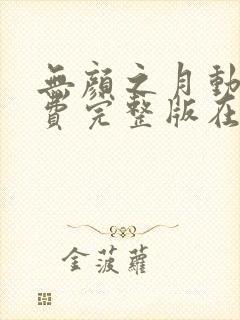 無顏之月動
費完整版在
金菠蘿